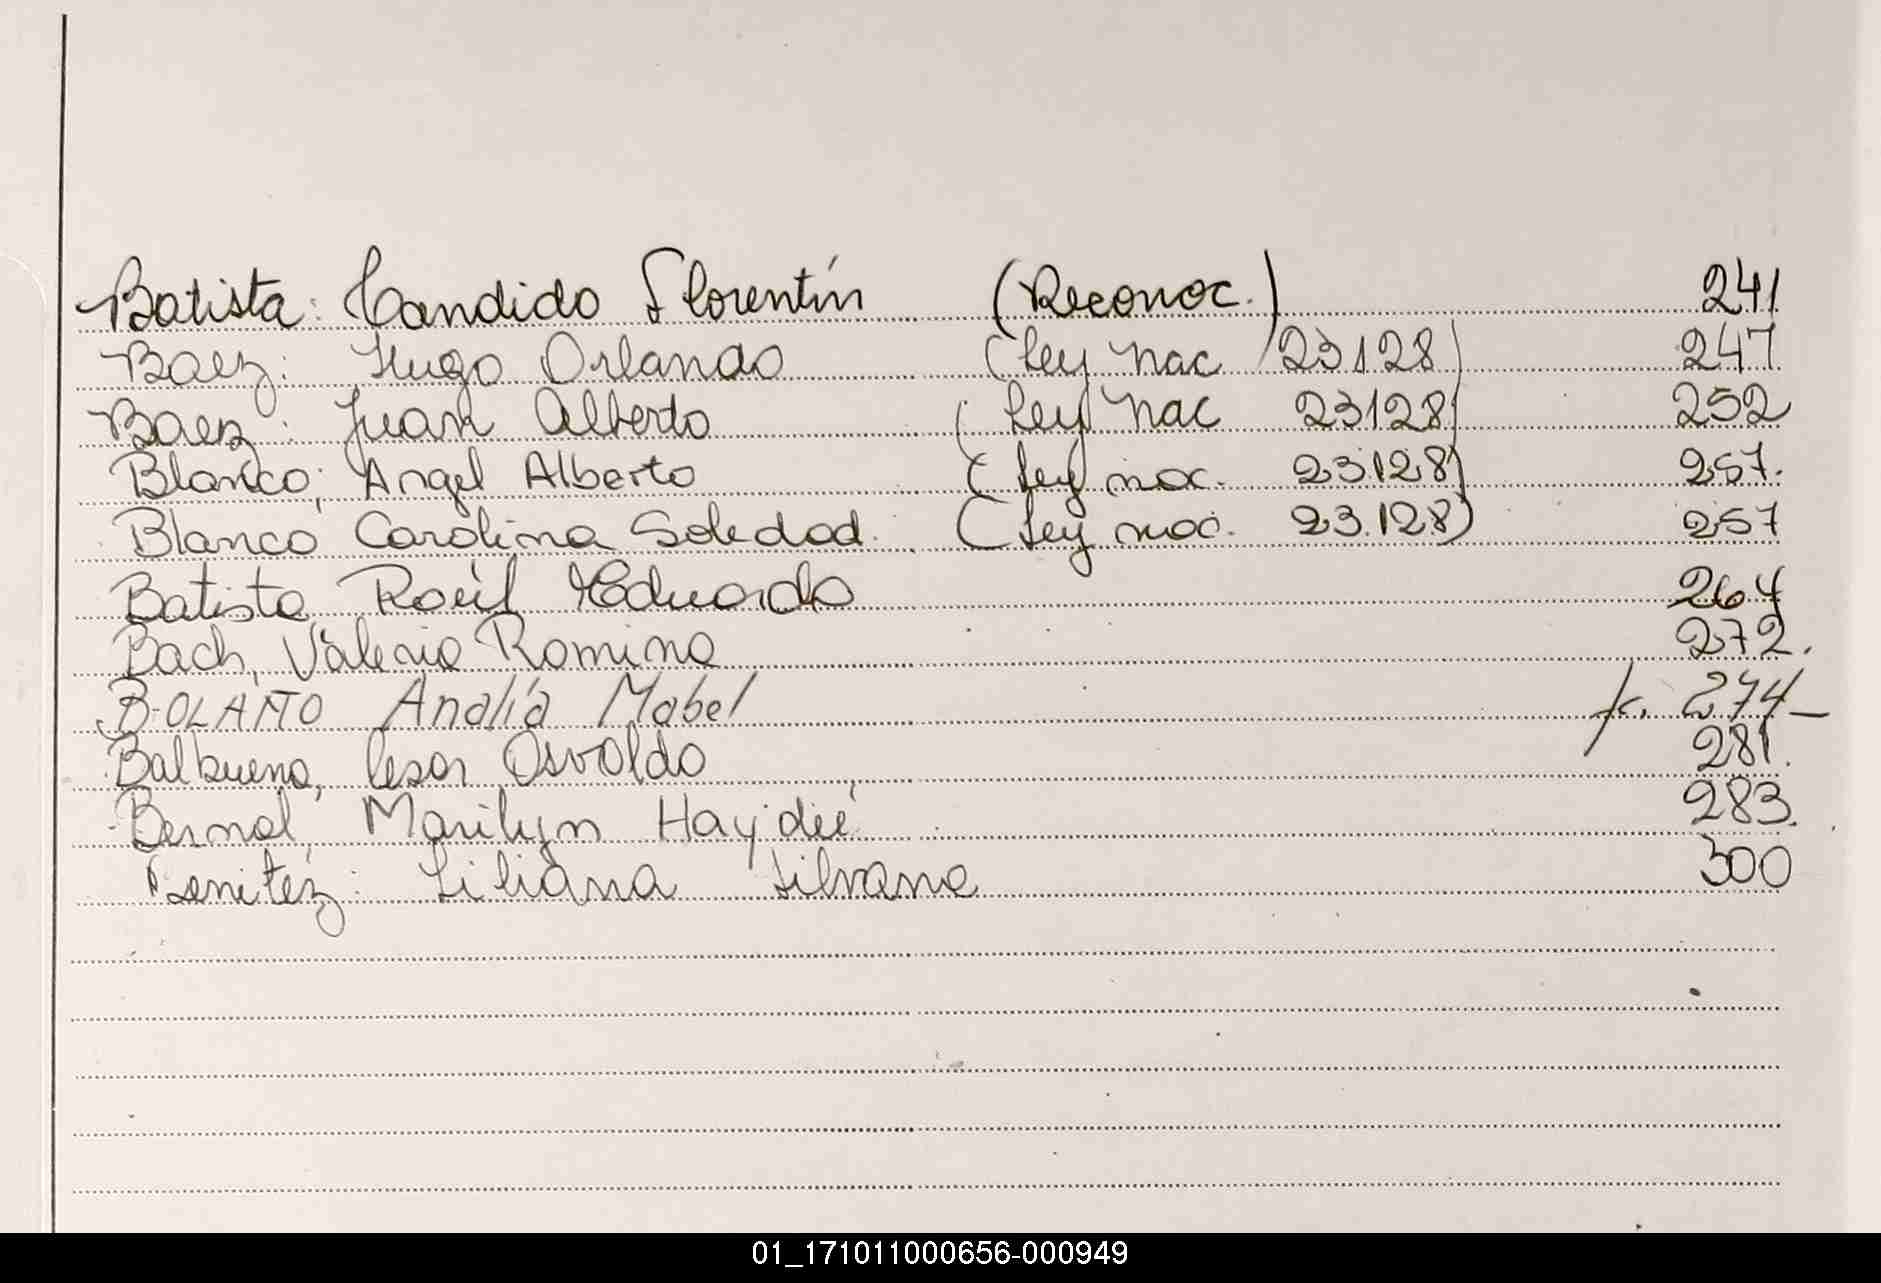 Batista: Candido Florentín (Reconoc.) 241
Baez: Hugo Orlando (Ley Nac 23128) 247
Baez: Juan Alberto (Ley Nac 23128) 252
Blanco, Angel Alberto (Ley nac. 23.128) 257.
Blanco Carolina Soledad. (Ley nac. 23.128) 257
Batista Raúl Eduardo 264
Bach, Valeria Romina 272.
BOLAÑO Analía Mabel f. 274-
Balbuena, Cesar Osvaldo 281.
Bernal, Marilyn Haydeé 283.
Benitez: Liliana Silvana 300
01_171011000656-000949